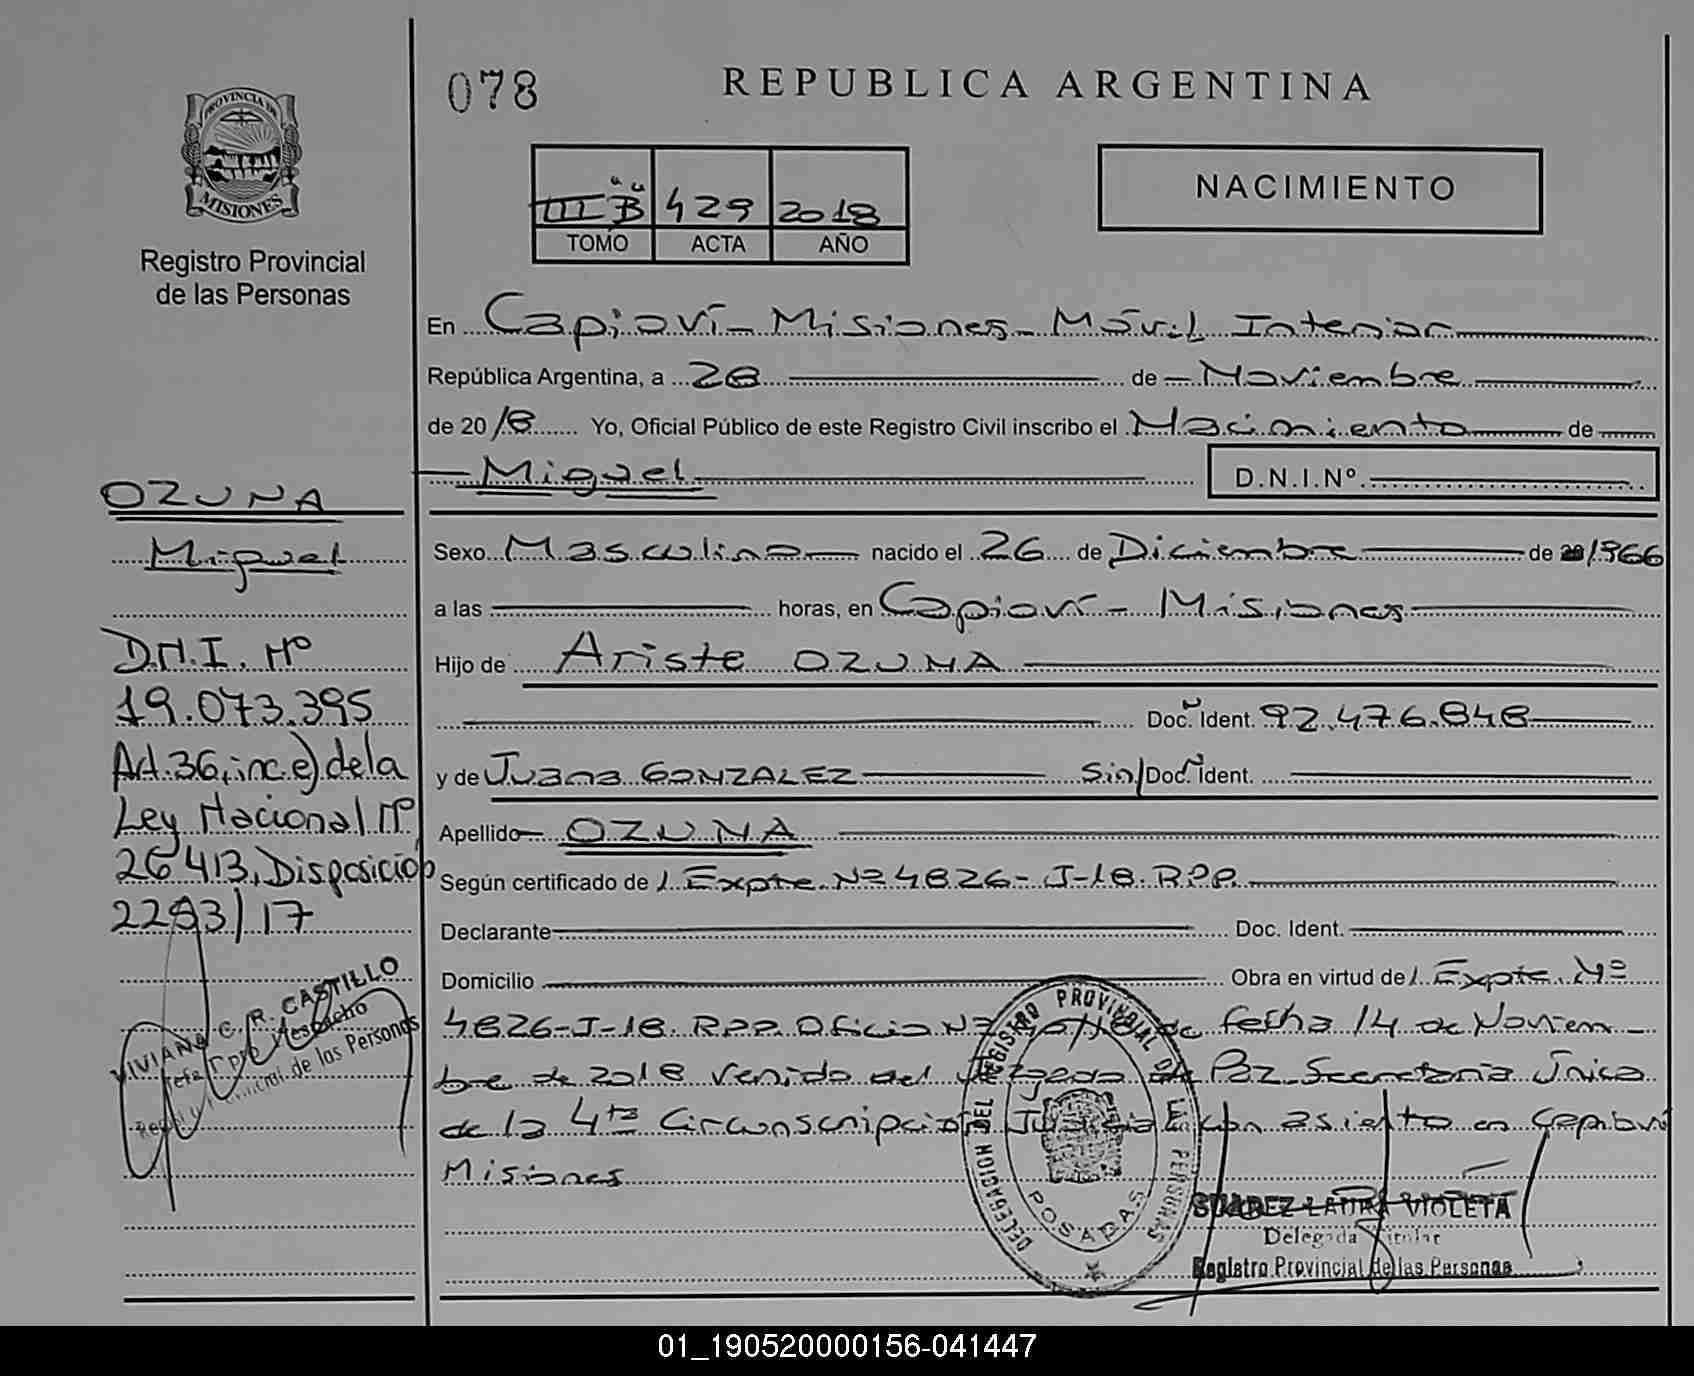 078
REPUBLICA ARGENTINA
PROVINCIA DE
MISIONES
Registro Provincial
de las Personas
III "B" 429 2018
TOMO ACTA AÑO
NACIMIENTO
En Capioví - Misiones - Móvil Interior
República Argentina, a 28 de Noviembre
de 2018 Yo, Oficial Público de este Registro Civil inscribo el Nacimiento de
Miguel D.N.I.Nº
Sexo Masculino nacido el 26 de Diciembre de 1966
a las horas, en Capioví - Misiones
Hijo de Ariste OZUNA
Doc. Ident. 92.476.848
y de Juana GONZALEZ Sin/Doc. Ident.
Apellido OZUNA
Según certificado de Expte. Nº 4826-J-18. R.P.P.
Declarante Doc. Ident.
Domicilio Obra en virtud de Expte. Nº
4826-J-18. R.P.P. Oficio Nº de fecha 14 de Noviem-
bre de 2018 venido del Juzgado de Paz Secretaria Única
de la 4ta Circunscripción Judicial con asiento en Capioví
Misiones
OZUNA
Miguel
D.N.I. Nº
19.073.395
Art. 36, inc. e) de la
Ley Nacional Nº
26 413, Disposición
2293/17
VIVIANA C. R. CASTILLO
Jefa Dpto Despacho
Registro Provincial de las Personas
DELEGACION DEL REGISTRO PROVINCIAL DE LAS PERSONAS
POSADAS
SUAREZ LAURA VIOLETA
Delegada Titular
Registro Provincial de las Personas
01_190520000156-041447